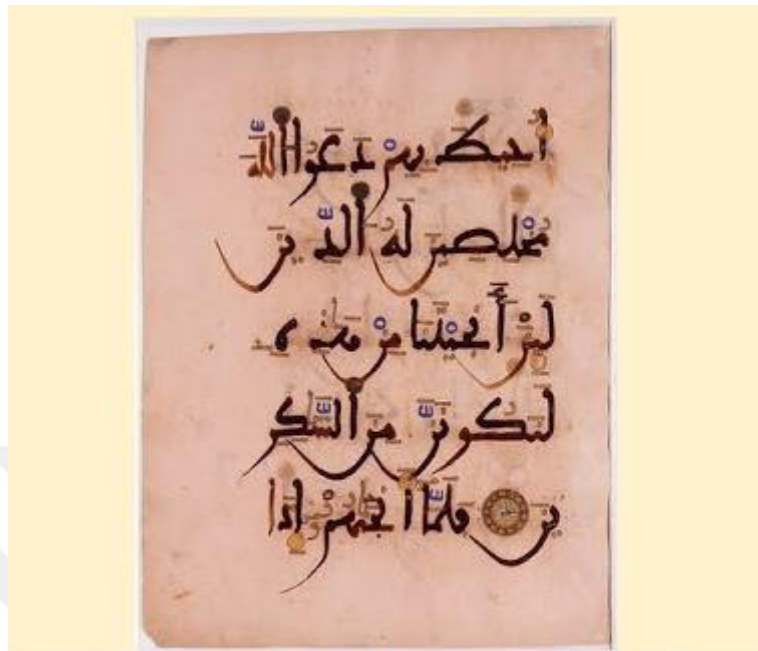 أُحِيطَ بِهِمْ دَعَوُا۟ اللَّهَ
مُخْلِصِينَ لَهُ الدِّينَ
لَئِنْ أَنجَيْتَنَا مِنْ هَٰذِهِ
لَنَكُونَنَّ مِنَ الشَّٰكِرِ
ينَ فَلَمَّا أَنجَىٰهُمْ إِذَا